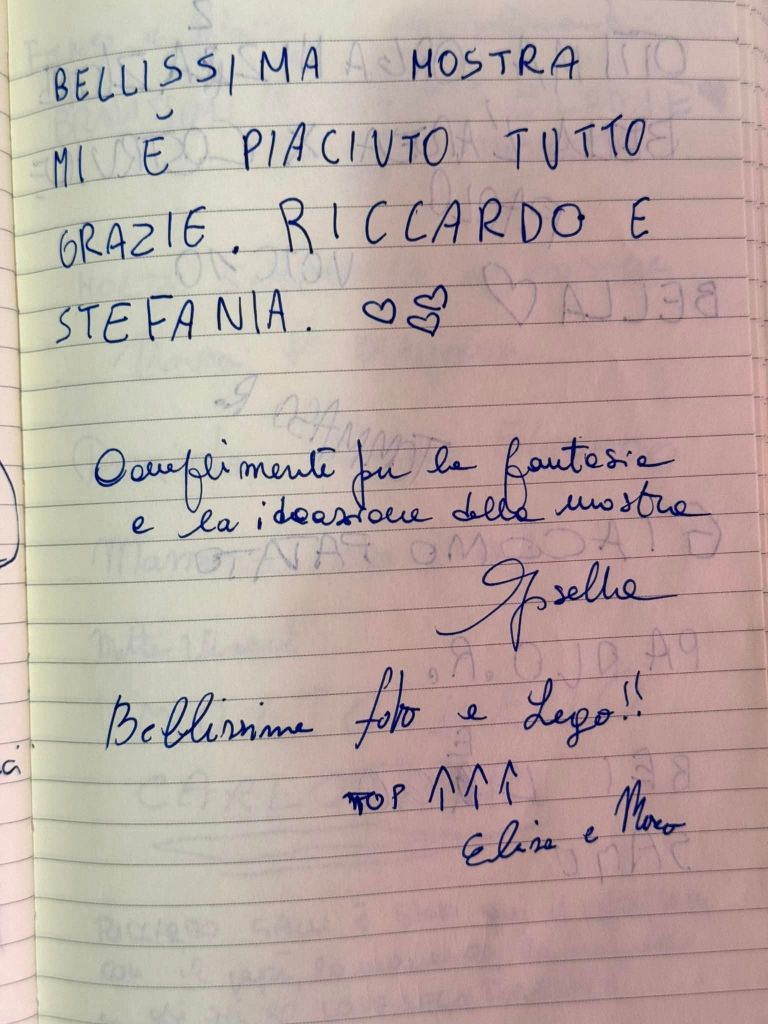 BELLISSIMA MOSTRA
MI È PIACIUTO TUTTO
GRAZIE. RICCARDO E
STEFANIA. ♡♡♡
Complimenti per la fantasia
e la ideazione della mostra
Bellissime foto e Lego!!
TOP ↑↑↑
Elisa e